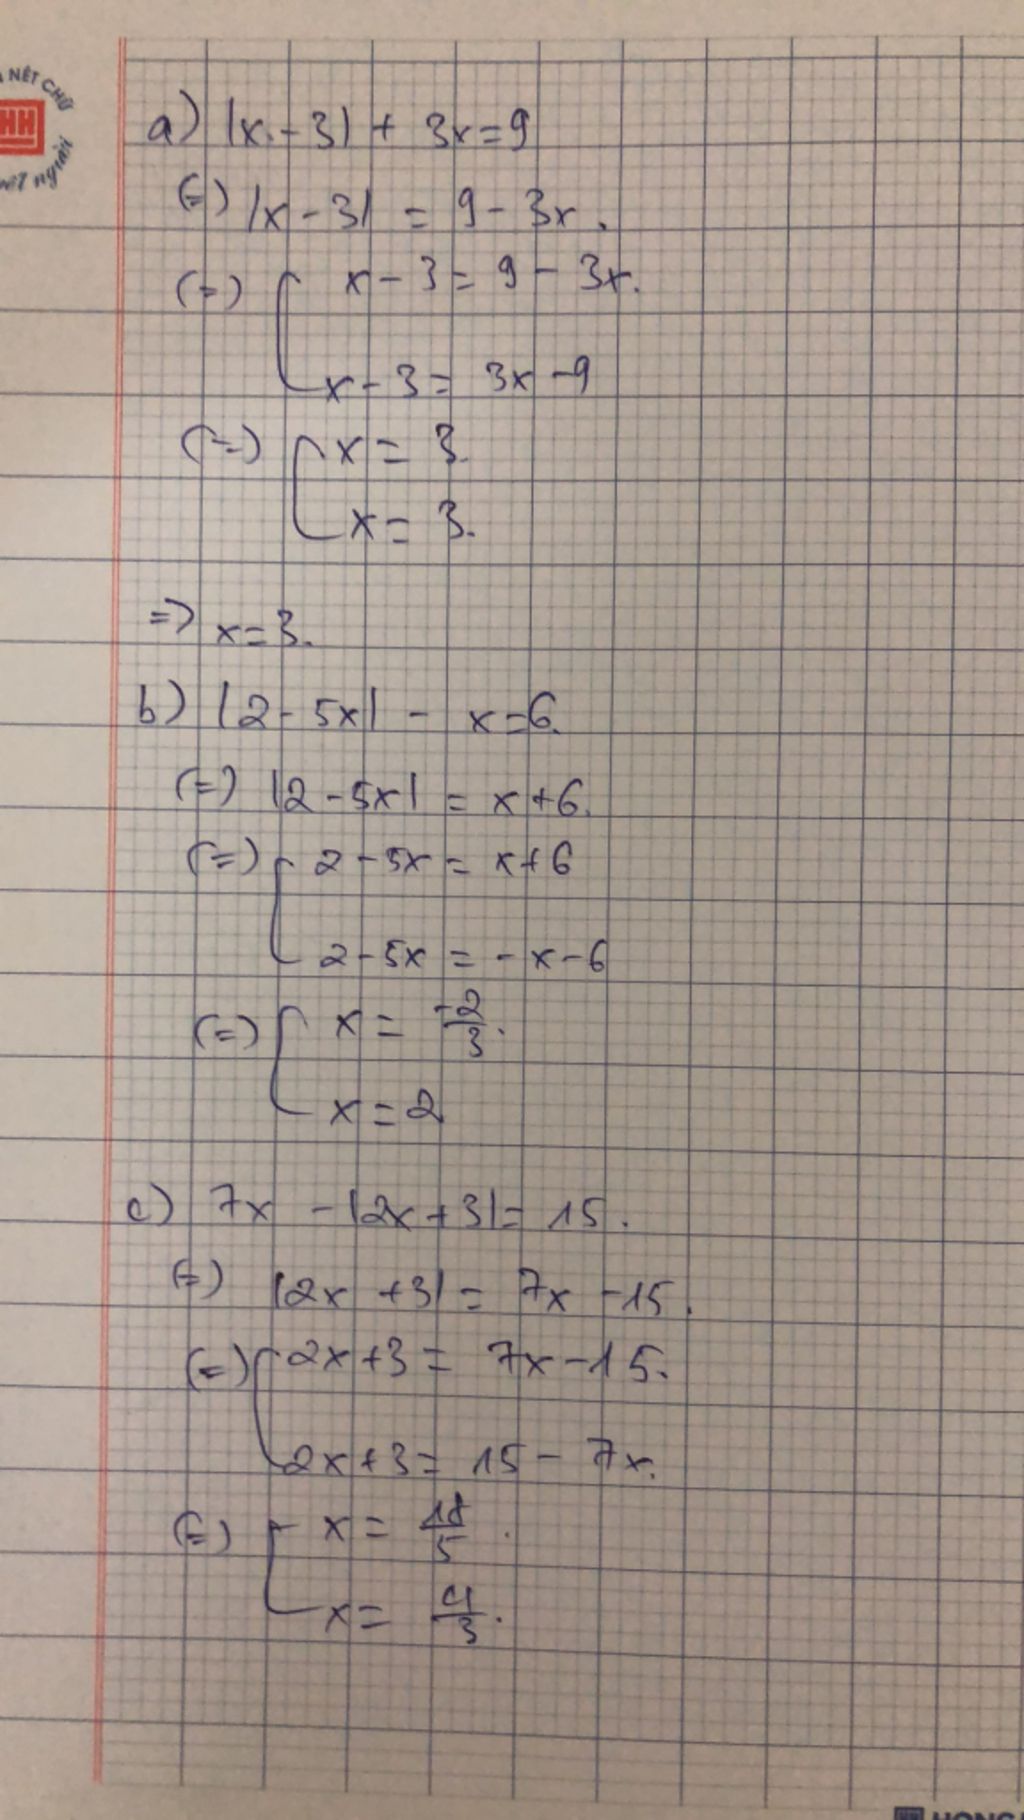 NÉT CHỮ
HH
nết người
a) |x - 3| + 3x = 9
(=) |x - 3| = 9 - 3x.
(=) [ x - 3 = 9 - 3x.
x - 3 = 3x - 9
(=) [ x = 3.
x = 3.
=> x = 3.
b) |2 - 5x| - x = 6.
(=) |2 - 5x| = x + 6.
(=) [ 2 - 5x = x + 6
2 - 5x = -x - 6
(=) [ x = -2/3.
x = 2
c) 7x - |2x + 3| = 15.
(=) |2x + 3| = 7x - 15.
(=) [ 2x + 3 = 7x - 15.
2x + 3 = 15 - 7x.
(=) [ x = 18/5.
x = 4/3.
HONG